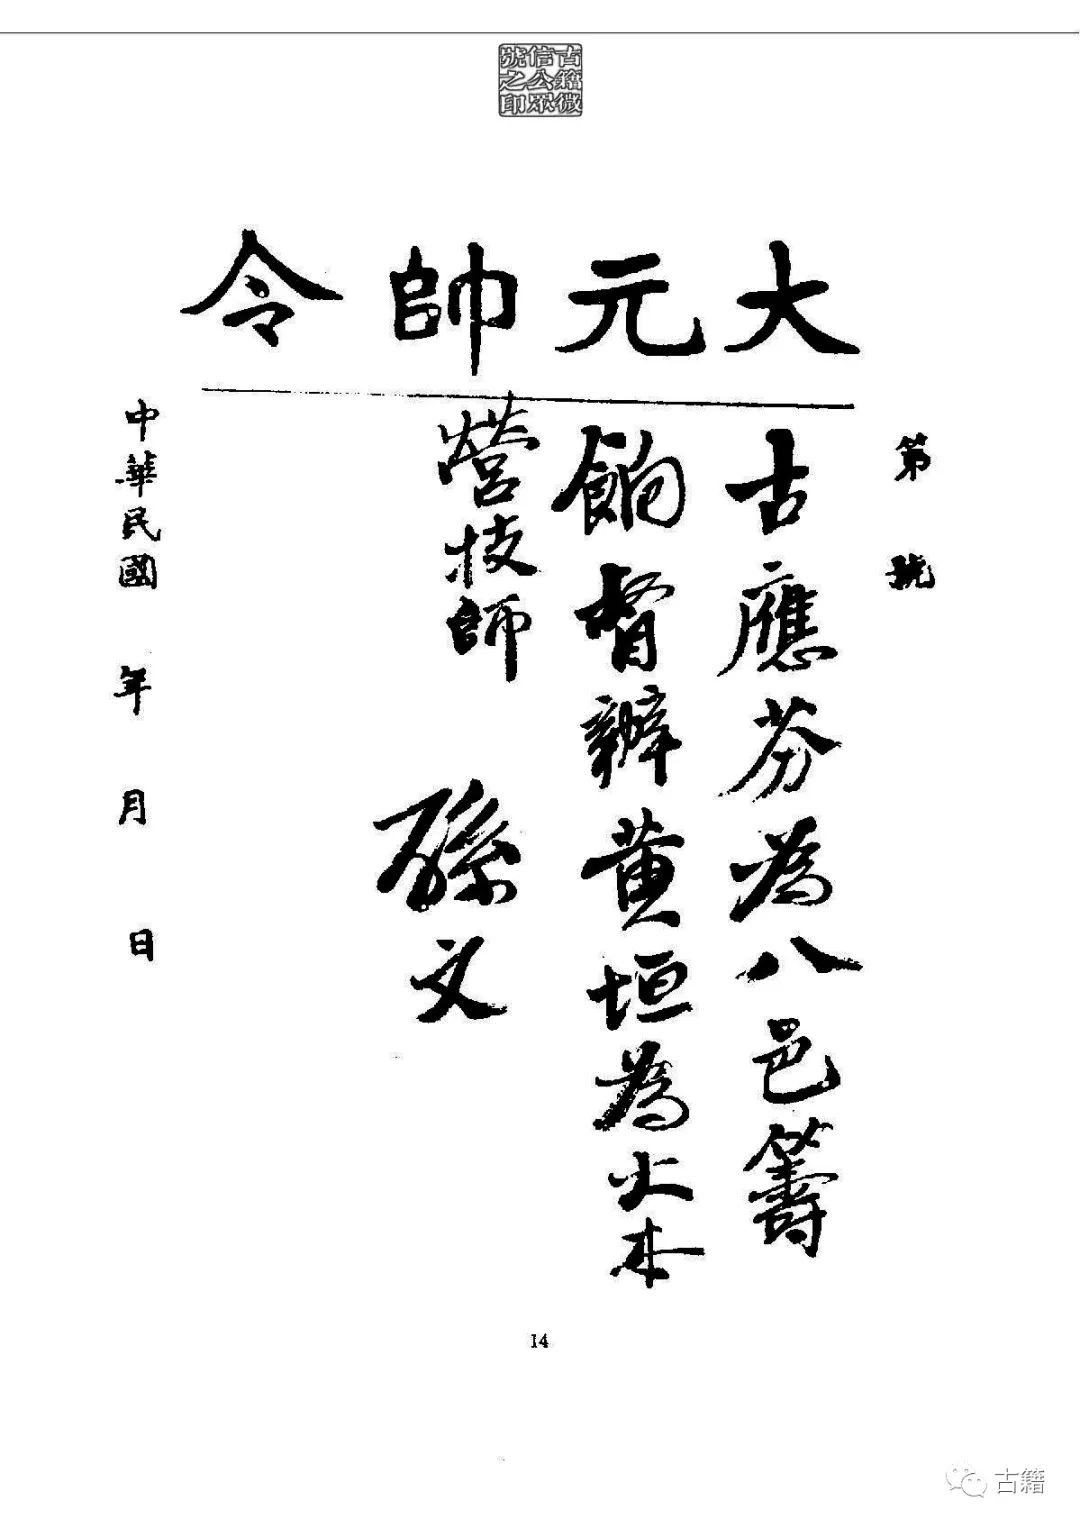 古籍微
信公眾
號之印
大元帥令
第 號
古應芬為八邑籌
餉督辦黃垣為大本
營技師
孫文
中華民國 年 月 日
14
古籍